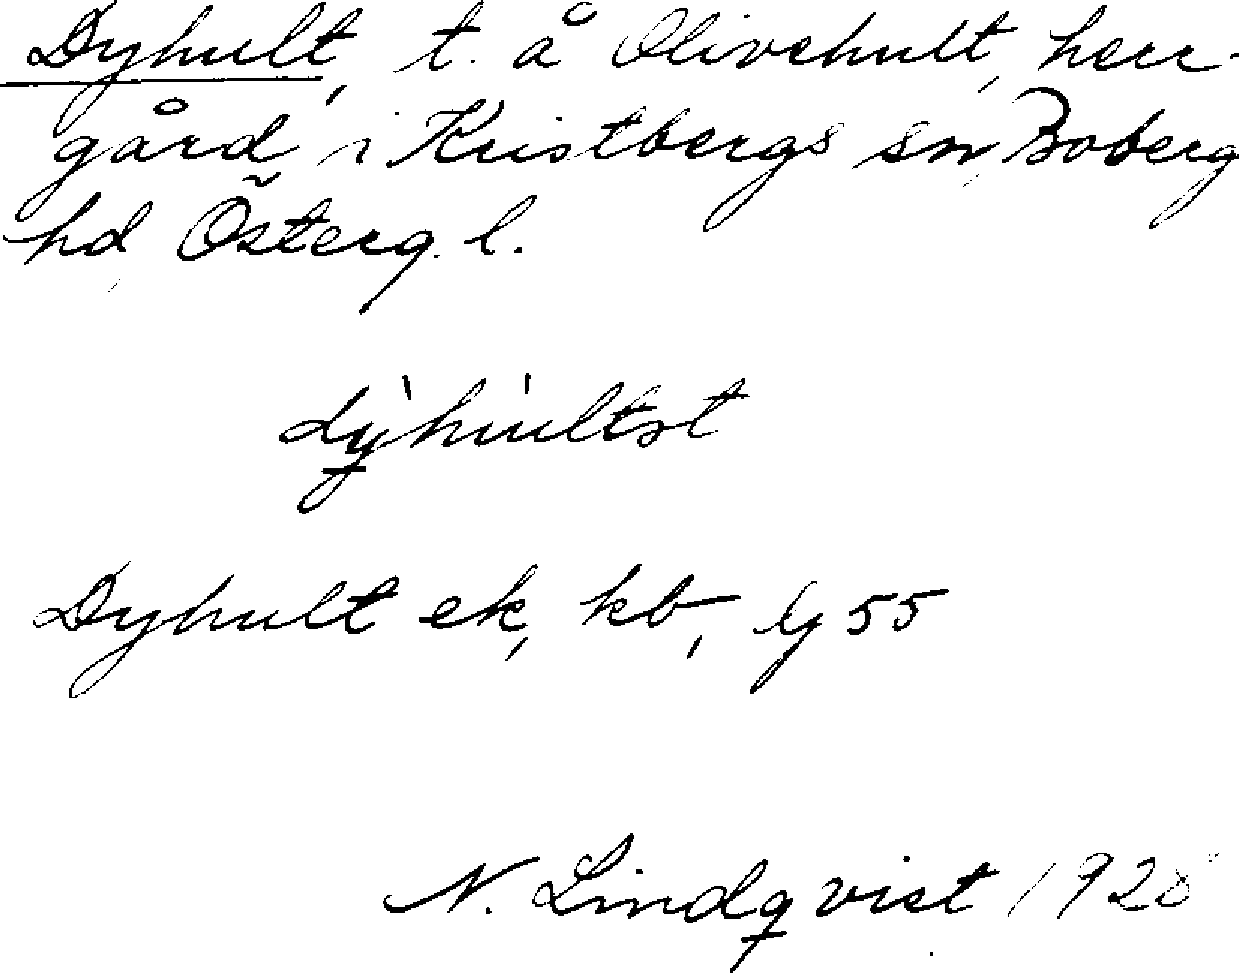 Dyhult, t. å Olivehult, herr-
gård i Kristbergs sn, Boberg
hd, Österg. l.
Dyhult ek, kb,
N. Lindqvist 1928